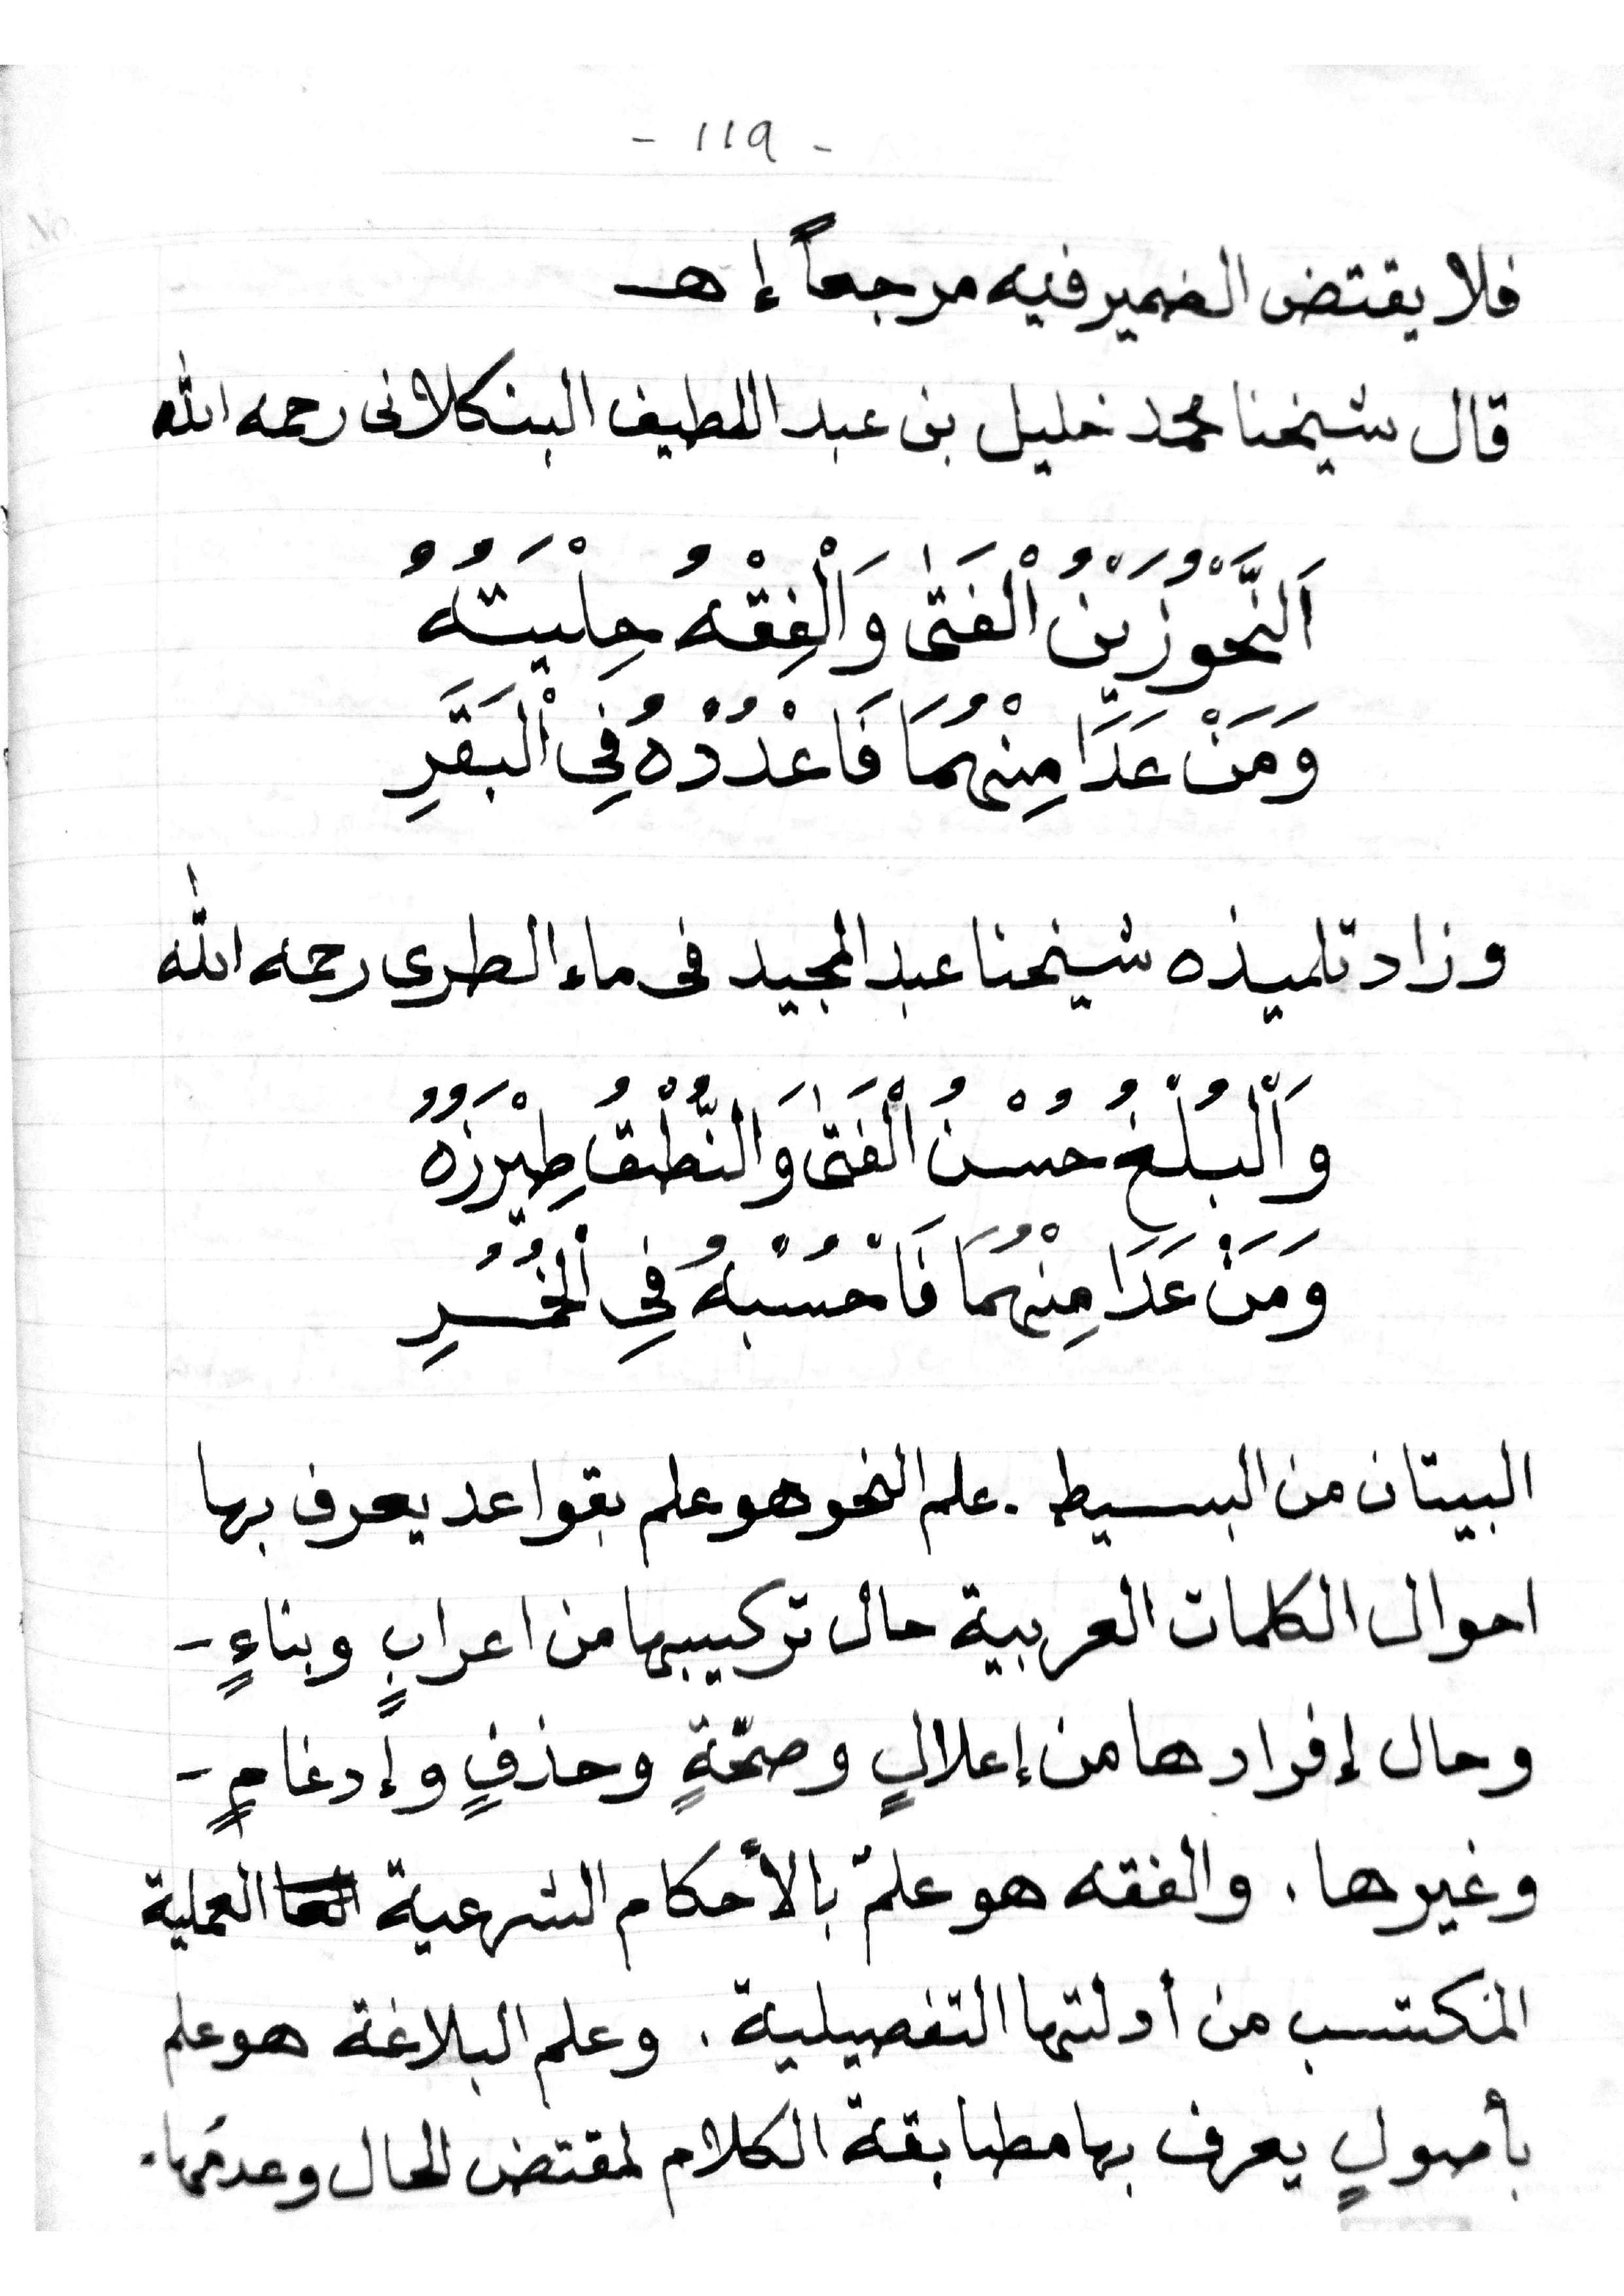 - ١١٩ -
فلا يقتض الضمير فيه مرجعاً إ هـ
قال شيخنا محمد خليل بن عبد اللطيف البنكلانى رحمه الله
اَلنَّحْوُ زَيْنُ الْفَتىٰ وَالْفِقْهُ حِلْيَتُهُ
وَمَنْ عَدَا مِنْهُمَا فَاعْدُدْهُ فِى الْبَقَرِ
وزاد تلميذه شيخنا عبد المجيد فى ماء الطرى رحمه الله
وَالْبُلْغُ حُسْنُ الْفَتىٰ وَالنُّطْقُ طِيْرَزُهُ
وَمَنْ عَدَا مِنْهُمَا فَاحْسُبْهُ فِى الْحُمُرِ
البيتان من البسيط . علم النحو هو علم بقواعد يعرف بها
احوال الكلمات العربية حال تركيبها من اعرابٍ وبناءٍ -
وحال إفرادها من إعلالٍ وصحّةٍ وحذفٍ وإدغامٍ -
وغيرها . والفقه هو علمٌ بالأحكام الشرعية العملية
المكتسب من أدلتها التفصيلية . وعلم البلاغة هو علم
بأصولٍ يعرف بها مطابقة الكلام لمقتض الحال وعدمُها .